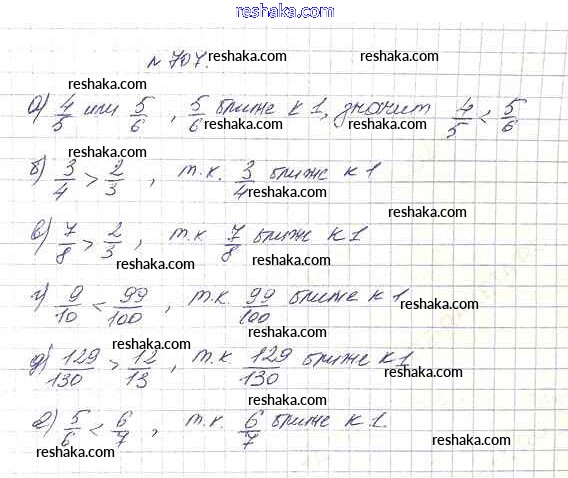 reshaka.com
№ 707. reshaka.com reshaka.com
reshaka.com
а) 4/5 или 5/6, 5/6 ближе к 1, значит 4/5 < 5/6
reshaka.com reshaka.com
reshaka.com
б) 3/4 > 2/3, т.к. 3/4 ближе к 1
reshaka.com
reshaka.com
в) 7/8 > 2/3, т.к 7/8 ближе к 1
reshaka.com reshaka.com
г) 9/10 < 99/100, т.к. 99/100 ближе к 1
reshaka.com
reshaka.com
д) 129/130 > 12/13, т.к. 129/130 ближе к 1
reshaka.com
reshaka.com
е) 5/6 < 6/7, т.к. 6/7 ближе к 1.
reshaka.com
reshaka.com